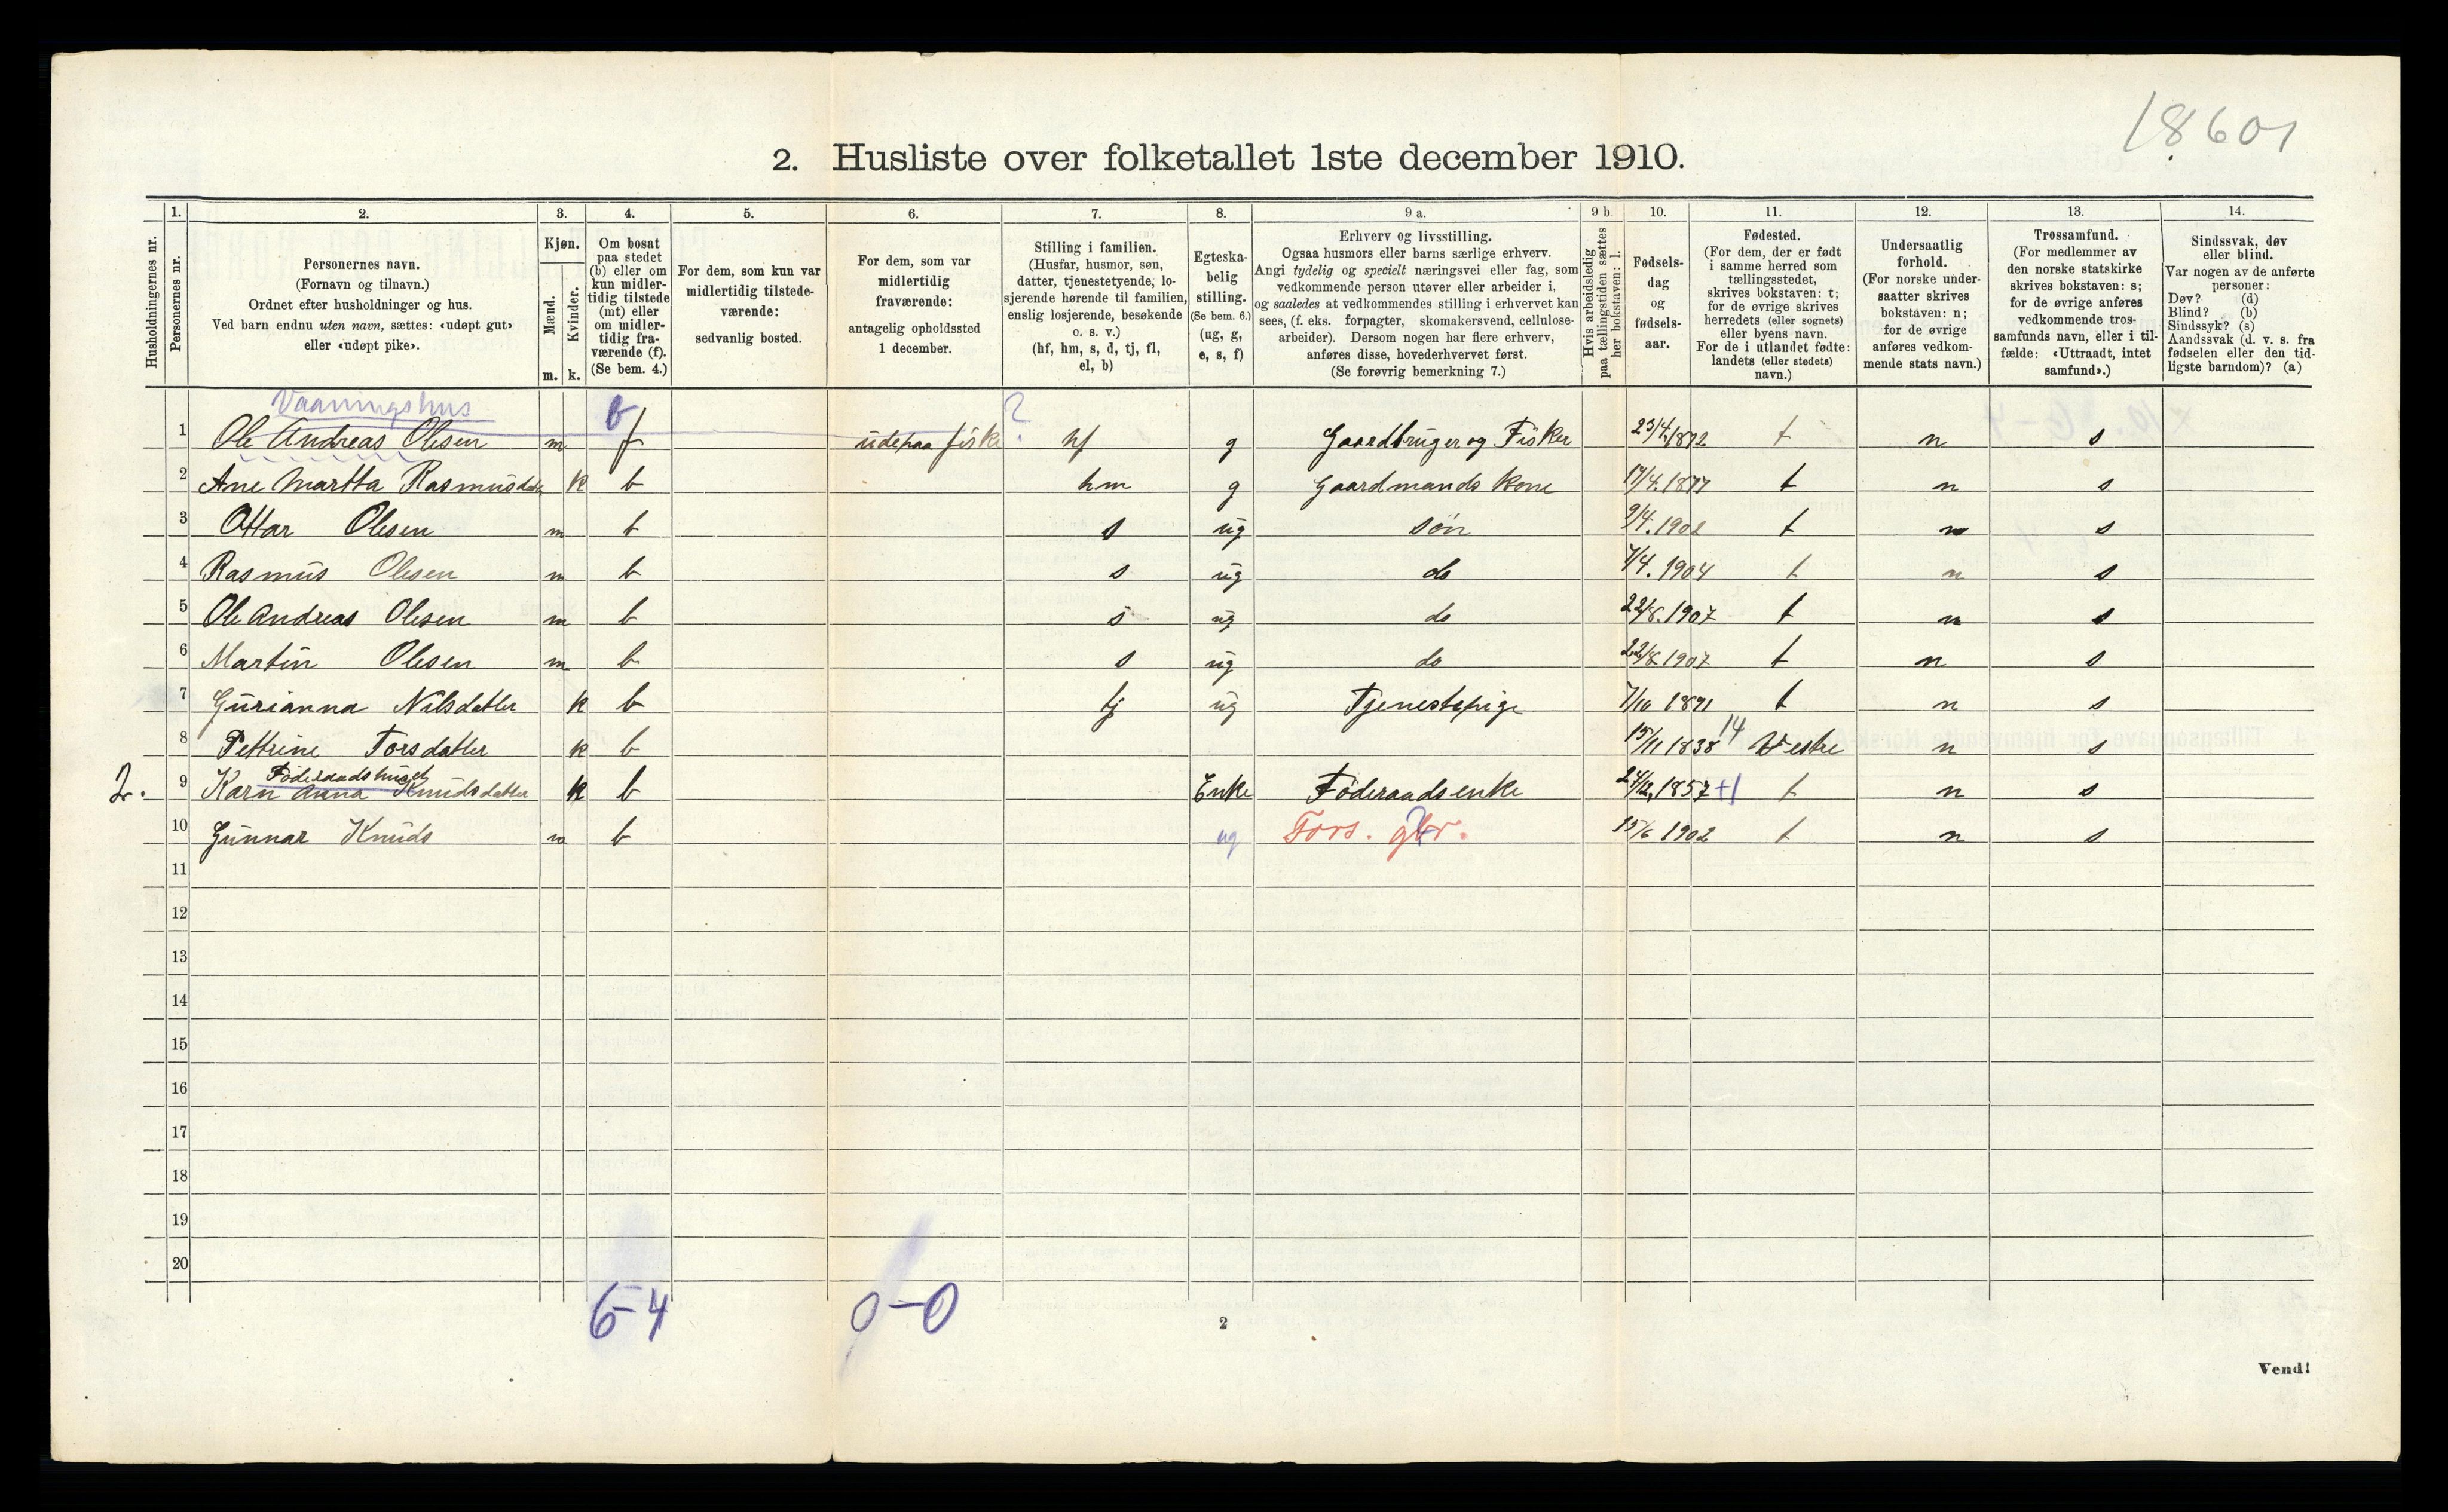 18601
2. Husliste over folketallet 1ste december 1910.
Husholdningernes nr.
1. Personernes nr.
2. Personernes navn.
(Fornavn og tilnavn.)
Ordnet efter husholdninger og hus.
Ved barn endnu uten navn, sættes: «udøpt gut»
eller «udøpt pike».
3. Kjøn.
Mænd. m.
Kvinder. k.
4. Om bosat
paa stedet
(b) eller om
kun midler-
tidig tilstede
(mt) eller
om midler-
tidig fra-
værende (f).
(Se bem. 4.)
5. For dem, som kun var
midlertidig tilstede-
værende:
sedvanlig bosted.
6. For dem, som var
midlertidig
fraværende:
antagelig opholdssted
1 december.
7. Stilling i familien.
(Husfar, husmor, søn,
datter, tjenestetyende, lo-
sjerende hørende til familien,
enslig losjerende, besøkende
o. s. v.)
(hf, hm, s, d, tj, fl,
el, b)
8. Egteska-
belig
stilling.
(Se bem. 6.)
(ug, g,
e, s, f)
9 a. Erhverv og livsstilling.
Ogsaa husmors eller barns særlige erhverv.
Angi tydelig og specielt næringsvei eller fag, som
vedkommende person utøver eller arbeider i,
og saaledes at vedkommendes stilling i erhvervet kan
sees, (f. eks. forpagter, skomakersvend, cellulose-
arbeider). Dersom nogen har flere erhverv,
anføres disse, hovederhvervet først.
(Se forøvrig bemerkning 7.)
9 b Hvis arbeidsledig
paa tællingstiden sættes
her bokstaven: l.
10. Fødsels-
dag
og
fødsels-
aar.
11. Fødested.
(For dem, der er født
i samme herred som
tællingsstedet,
skrives bokstaven: t;
for de øvrige skrives
herredets (eller sognets)
eller byens navn.
For de i utlandet fødte:
landets (eller stedets)
navn.)
12. Undersaatlig
forhold.
(For norske under-
saatter skrives
bokstaven: n;
for de øvrige
anføres vedkom-
mende stats navn.)
13. Trossamfund.
(For medlemmer av
den norske statskirke
skrives bokstaven: s;
for de øvrige anføres
vedkommende tros-
samfunds navn, eller i til-
fælde: «Uttraadt, intet
samfund».)
14. Sindssvak, døv
eller blind.
Var nogen av de anførte
personer:
Døv? (d)
Blind? (b)
Sindssyk? (s)
Aandssvak (d. v. s. fra
fødselen eller den tid-
ligste barndom)? (a)
Vaaningshus b ?
1 Ole Andreas Olesen m f udepaa fiske hf g Gaardbruger og Fisker 23/4 1872 t n s
2 Ane Martta Rasmusdatr k b hm g Gaardmands Kone 17/4.1877 t n s
3 Ottar Olesen m b s ug søn 9/4.1902 t n s
4 Rasmus Olesen m b s ug do 7/4.1904 t n s
5 Ole Andreas Olesen m b s ug do 22/8.1907 t n s
6 Martin Olesen m b s ug do 22/8 1907 t n s
7 Gurianna Nilsdatter k b tj ug Tjenestepige 7/10 1891 t n s
8 Pettrine Torsdatter k b 15/11 1838 14 n s
Føderaadshuset
2. 9 Karn Anna Knudsdatter k b Enke Føderaadsenke 24/12, 1857 +1 t n s
10 Gunnar Knuds m b ug Fors. gbr. 15/6 1902 t n s
11
12
13
14
15
16
17
18
19
20
6-4 0-0
2
Vend!